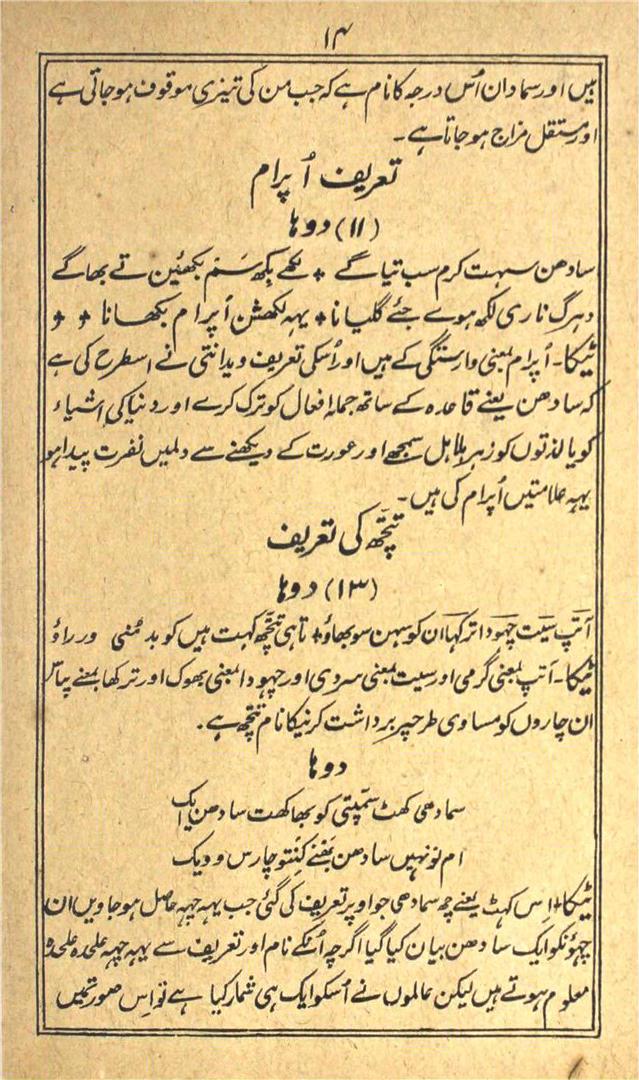 ۱۴
ہیں اور سمادان اُس درجہ کا نام ہے کہ جب من کی تیزی موقوف ہوجاتی ہے
اور مستقل مزاج ہوجاتا ہے۔
تعریف اُپرام
(۱۱) دوہا
سادھن سہت کرم سب تیاگے ٭ لکھے بکھ سَم بکھئین تے بھاگے
دہرگ ناری لکھ ہوے جئے گلیانا ٭ یہہ لکھشن اُپرام بکھانا ٭ ٭
ٹیکا۔ اُپرام بمعنی وارستگی کے ہیں اور اُسکی تعریف ویدانتی نے اسطرح کی ہے
کہ سادھن یعنے قاعدہ کے ساتھ جملہ افعال کو ترک کرے اور دنیا کی اشیاء
کو یا لذتوں کو زہر ہلاہل سمجھے اور عورت کے دیکھنے سے دلمیں نفرت پیدا ہو
یہہ علامتیں اُپرام کی ہیں۔
تِتچھ کی تعریف
(۱۳) دوہا
آتپ سیت چہودا ترکہا ان کو سہن سوبھاؤ ٭ تاہی تِتچھ کہت ہیں کو بد مُنی ورراؤ
ٹیکا۔ آتپ بمعنی گرمی اور سیت بمعنی سردی اور چہودا بمعنی بھوک اور ترکھا بمعنے پیاس
ان چاروں کو مساوی طرحپر برداشت کرنیکا نام تِتچھ ہے۔
دوہا
سمادھی کھٹ سمّپتی کو بھاکھت سادھن ایک
ام نو نہیں سادھن بھنے کِنتو چارس وویک
ٹیکا ٭ اِس کہٹ یعنے چھ سمادھی جو اوپر تعریف کی گئی جب یہہ چہہ حاصل ہوجاویں ان
چہؤنکو ایک سادھن بیان کیا گیا اگرچہ اُنکے نام اور تعریف سے یہہ چہہ علیحدہ علیحدہ
معلوم ہوتے ہیں لیکن عالموں نے اُسکو ایک ہی شمار کیا ہے تو اِس صورتمیں